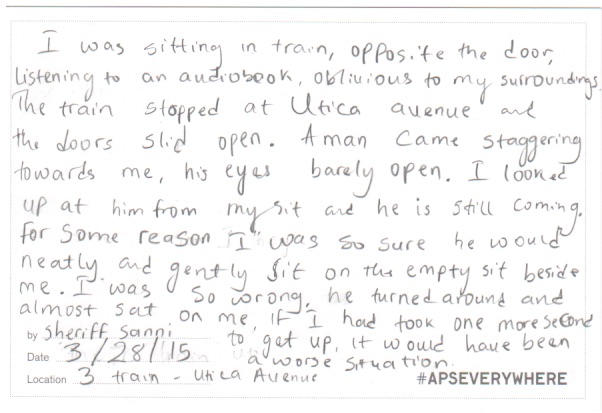 I was sitting in train, opposite the door,
listening to an audiobook, oblivious to my surroundings.
The train stopped at Utica avenue and
the doors slid open. A man came staggering
towards me, his eyes barely open. I looked
up at him from my sit and he is still coming.
for some reason "I" was so sure he would
neatly and gently sit on the empty sit beside
me. I was so wrong, he turned around and
almost sat on me, If I had took one more second
to get up, it would have been
a worse situation.
by Sheriff Sanni
Date 3/28/15
Location 3 train - Utica Avenue
#APSEVERYWHERE